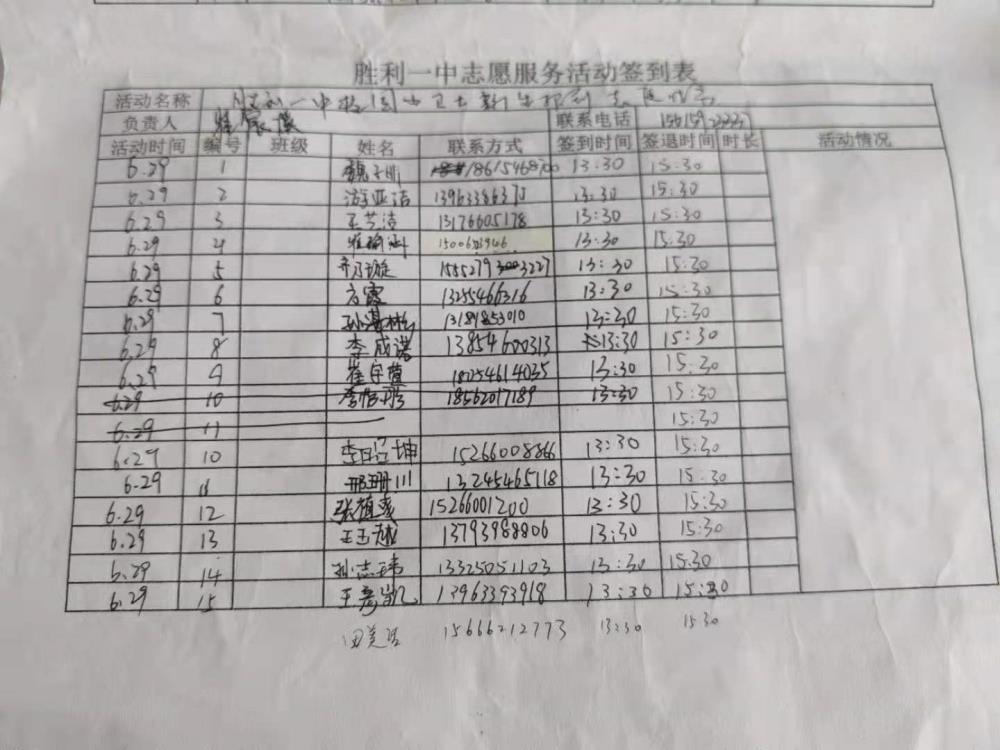 胜利一中志愿服务活动签到表
活动名称 胜利一中校园小卫士新生报到志愿服务
负责人 联系电话
活动时间 编号 班级 姓名 联系方式 签到时间 签退时间 时长 活动情况
6.29 1 18615468700 13:30 15:30
6.29 2 游亚洁 13963386370 13:30 15:30
6.29 3 王艺洁 13176605178 13:30 15:30
6.29 4 13:30 15:30
6.29 5 15552793227 13:30 15:30
6.29 6 方露 13255466316 13:30 15:30
6.29 7 13189853010 13:30 15:30
6.29 8 李成诺 13854600313 13:30 15:30
6.29 9 崔宇萱 18254614035 13:30 15:30
6.29 10 18562017189 13:30 15:30
6.29 11 15:30
6.29 10 李昭坤 15266008866 13:30 15:30
6.29 11 邢珊川 13245465118 13:30 15:30
6.29 12 15266001200 13:30 15:30
6.29 13 13793988806 13:30 15:30
6.29 14 孙志玮 13325051103 13:30 15:30
6.29 15 王彦凯 13963393918 13:30 15:30
15666212773 13:30 15:30